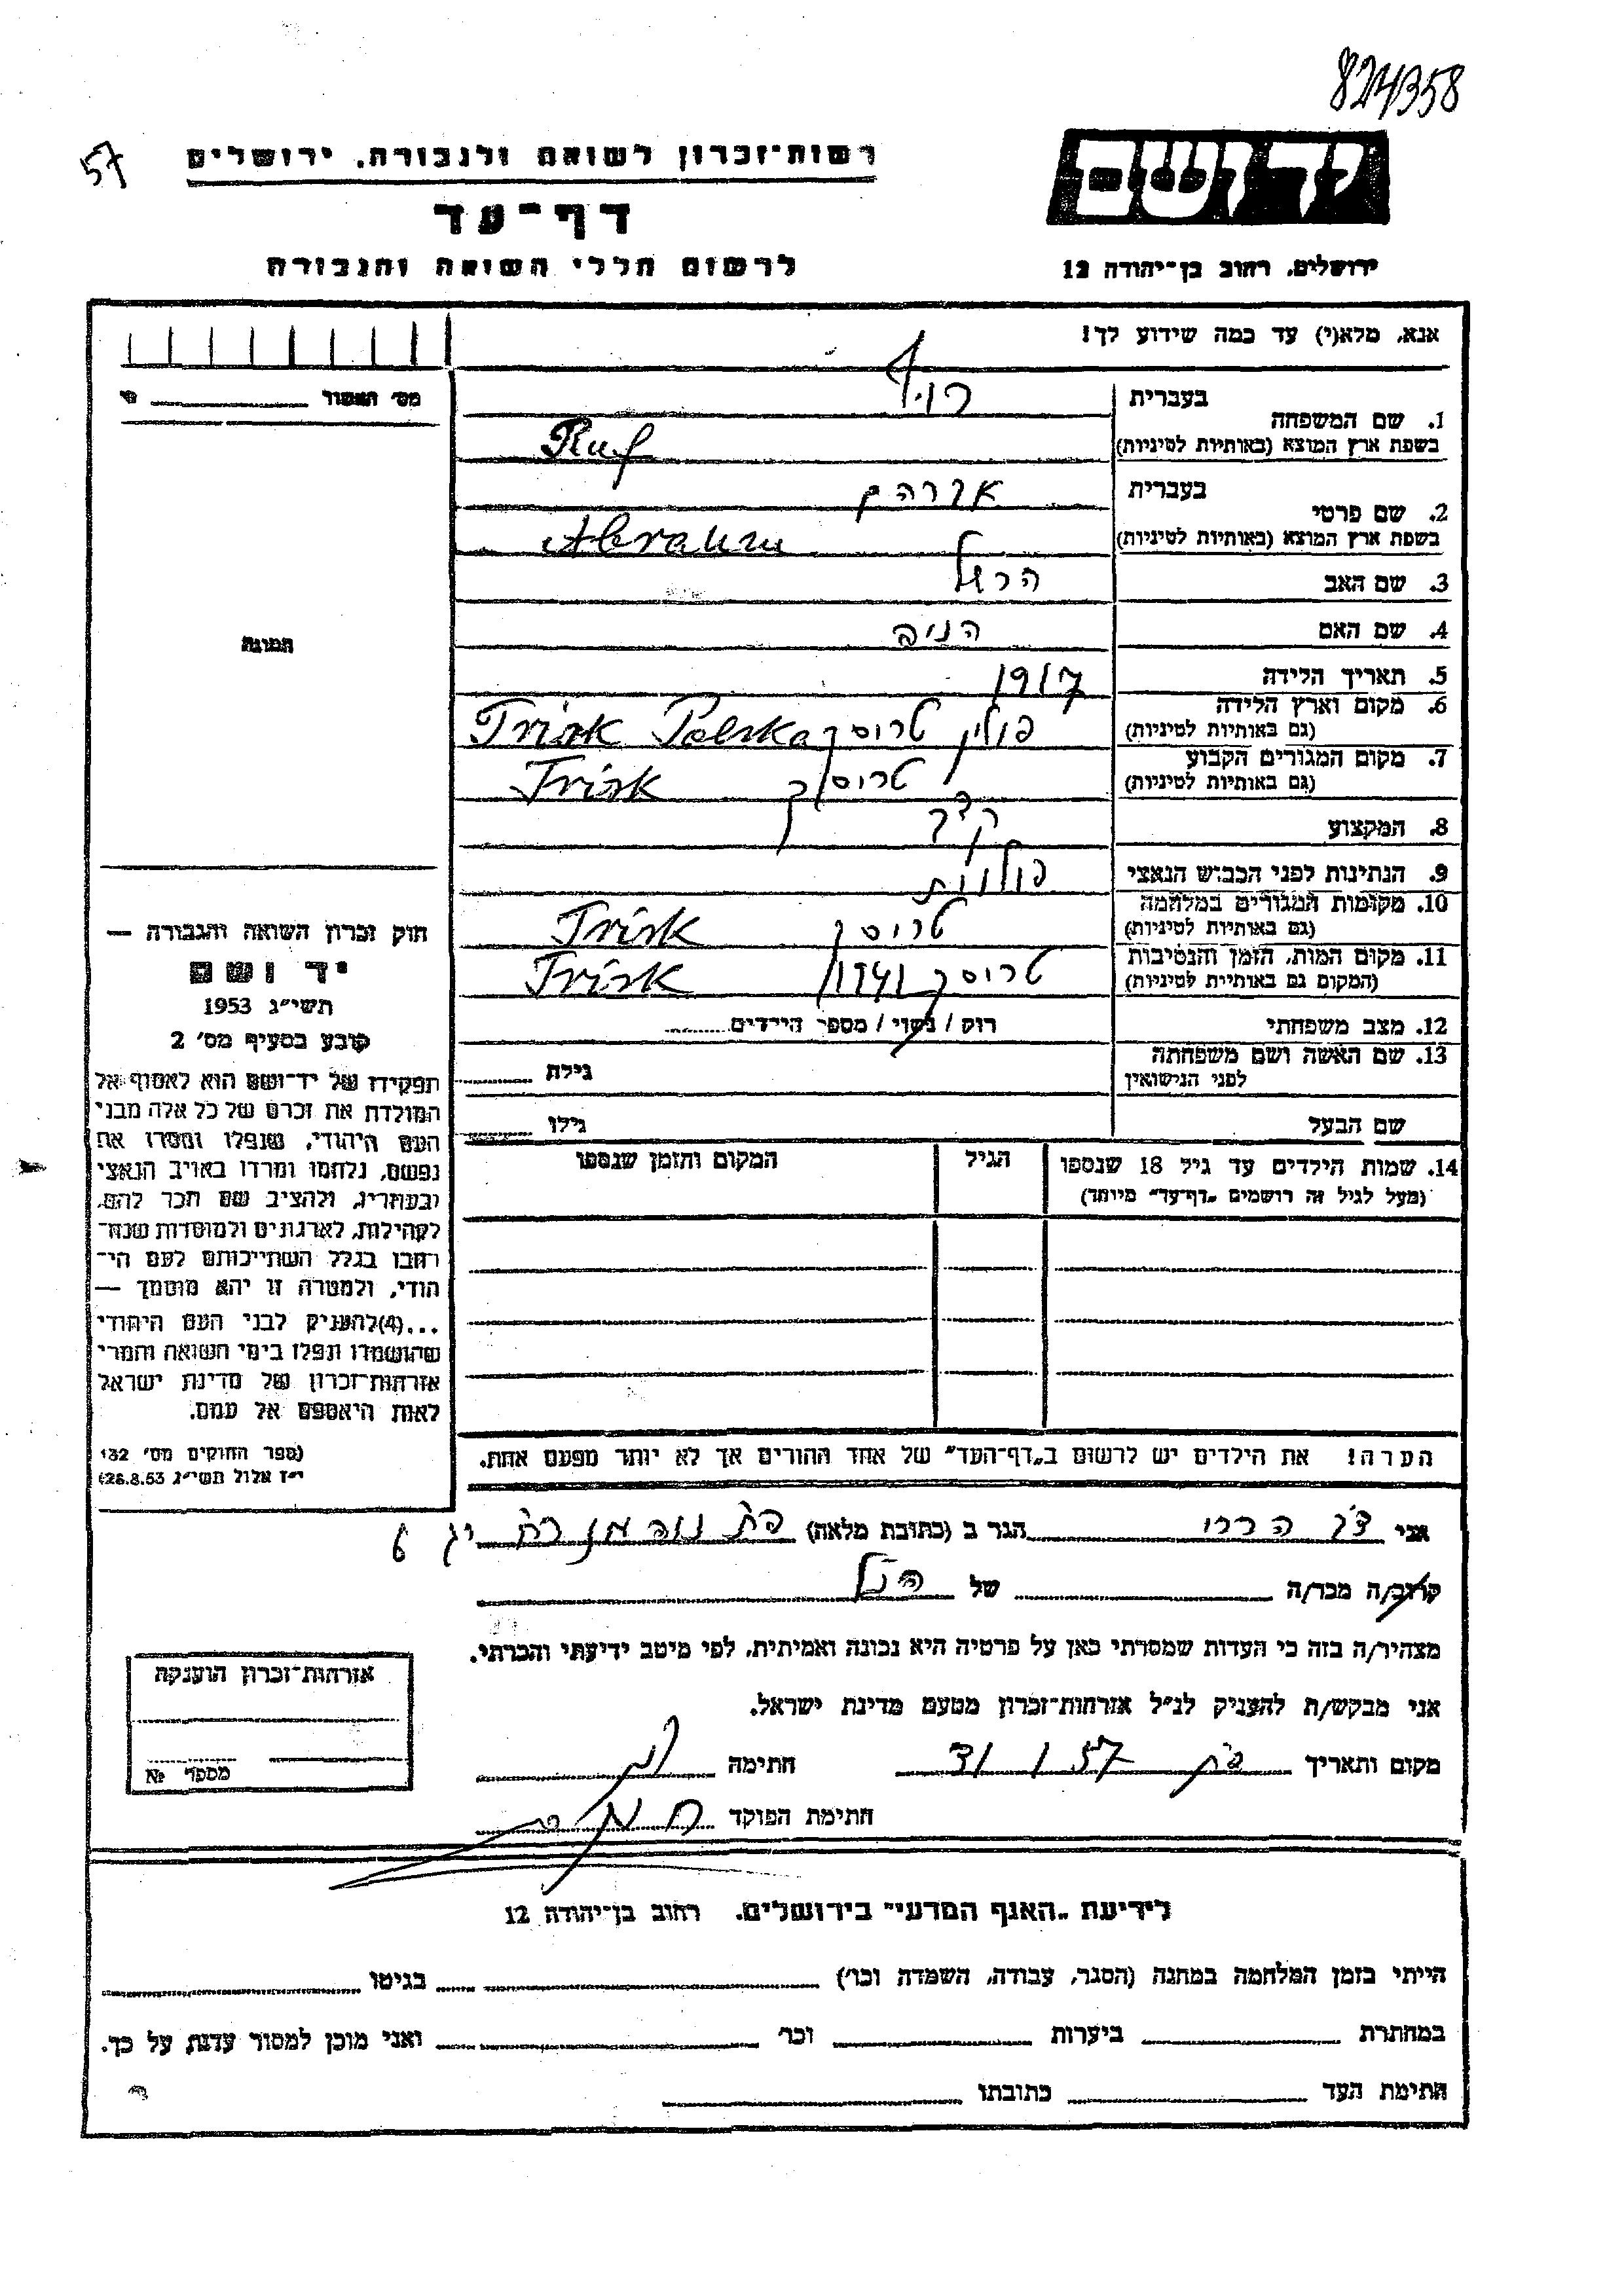 824358
57
רשות־זכרון לשואה ולגבורה, ירושלים
יד ושם
דף־עד
לרשום חללי השואה והגבורה
ירושלים, רחוב בן־יהודה 12
אנא, מלא(י) עד כמה שידוע לך!
מס' האשור
1. שם המשפחה
בעברית רויף
בשפת ארץ המוצא (באותיות לטיניות) Ruf
2. שם פרטי
בעברית אברהם
בשפת ארץ המוצא (באותיות לטיניות) Abraham
3. שם האב הרשל
4. שם האם
5. תאריך הלידה 1917
6. מקום וארץ הלידה פולין טריסק Trisk Polska
(גם באותיות לטיניות)
7. מקום המגורים הקבוע טריסק Trisk
(גם באותיות לטיניות)
8. המקצוע
9. הנתינות לפני הכבוש הנאצי פולנית
10. מקומות המגורים במלחמה טריסק Trisk
(גם באותיות לטיניות)
11. מקום המות, הזמן והנסיבות טריסק 1941 Trisk
(המקום גם באותיות לטיניות)
12. מצב משפחתי רוק / נשוי / מספר הילדים
13. שם האשה ושם משפחתה
לפני הנישואין גילה
שם הבעל גילו
14. שמות הילדים עד גיל 18 שנספו הגיל המקום והזמן שנספו
(מעל לגיל זה רושמים „דף־עד" מיוחד)
הערה! את הילדים יש לרשום ב„דף־העד" של אחד ההורים אך לא יותר מפעם אחת.
תמונה
חוק זכרון השואה והגבורה —
יד ושם
תשי"ג 1953
קובע בסעיף מס' 2
תפקידו של יד־ושם הוא לאסוף אל
המולדת את זכרם של כל אלה מבני
העם היהודי, שנפלו ומסרו את
נפשם, נלחמו ומרדו באויב הנאצי
ובעוזריו, ולהציב שם וזכר להם,
לקהילות, לארגונים ולמוסדות שנח־
רבו בגלל השתייכותם לעם הי־
הודי, ולמטרה זו יהא מוסמך —
...(4) להעניק לבני העם היהודי
שהושמדו ונפלו בימי השואה והמרי
אזרחות־זכרון של מדינת ישראל
לאות היאספם אל עמם.
(ספר החוקים מס' 132
י"ז אלול תשי"ג 28.8.53)
אני הגר ב (כתובת מלאה) 6
קרוב/ה מכר/ה של הנ"ל
מצהיר/ה בזה כי העדות שמסרתי כאן על פרטיה היא נכונה ואמיתית, לפי מיטב ידיעתי והכרתי.
אני מבקש/ת להעניק לנ"ל אזרחות־זכרון מטעם מדינת ישראל.
מקום ותאריך 31 1 57 חתימה
חתימת הפוקד
אזרחות־זכרון הוענקה
מספר №
לידיעת „האגף המדעי" בירושלים, רחוב בן־יהודה 12
הייתי בזמן המלחמה במחנה (הסגר, עבודה, השמדה וכו') בגיטו
במחתרת ביערות וכו' ואני מוכן למסור עדות על כך.
חתימת העד כתובתו